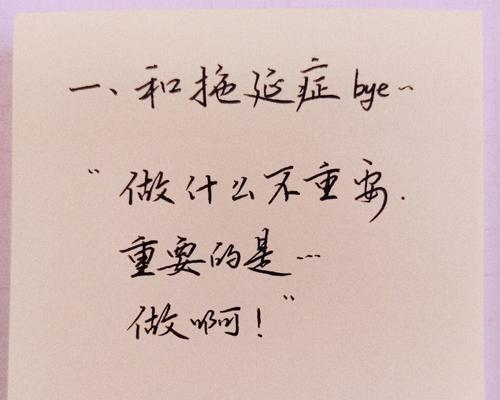 一、和拖延症bye~
“做什么不重要.
重要的是…
做啊!”